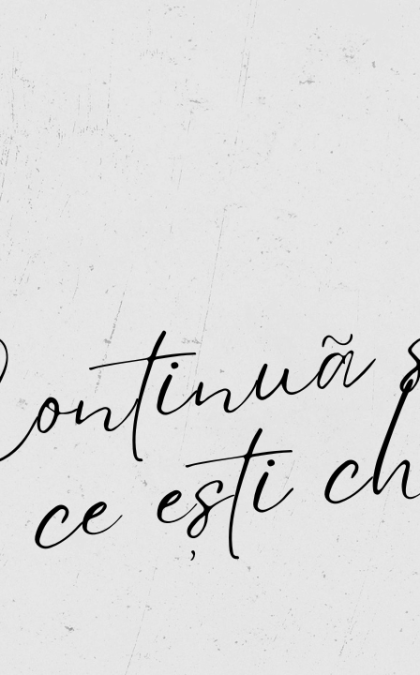 Continuã s
ce ești ch